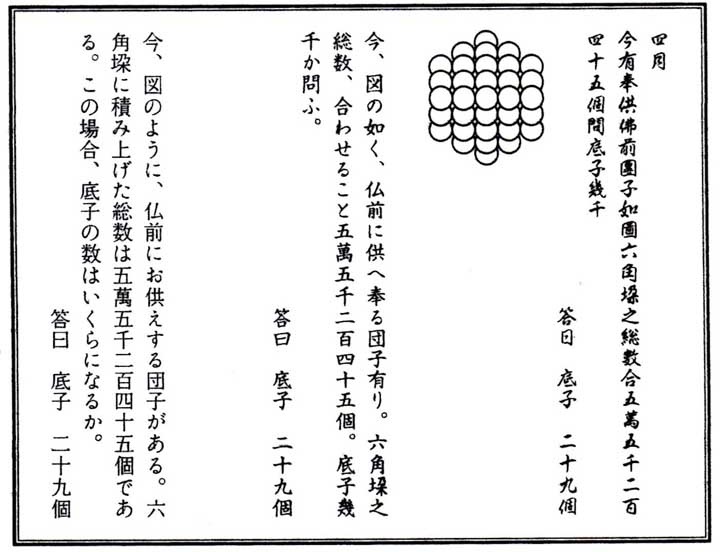 四月
今有奉供佛前團子如圖六角垜之総數合五萬五千二百
四十五個問底子幾千
答曰　底子　二十九個
今、図の如く、仏前に供へ奉る団子有り。六角垜之
総数、合わせること五萬五千二百四十五個。底子幾
千か問ふ。
答曰　底子　二十九個
今、図のように、仏前にお供えする団子がある。六
角垜に積み上げた総数は五萬五千二百四十五個であ
る。この場合、底子の数はいくらになるか。
答曰　底子　二十九個